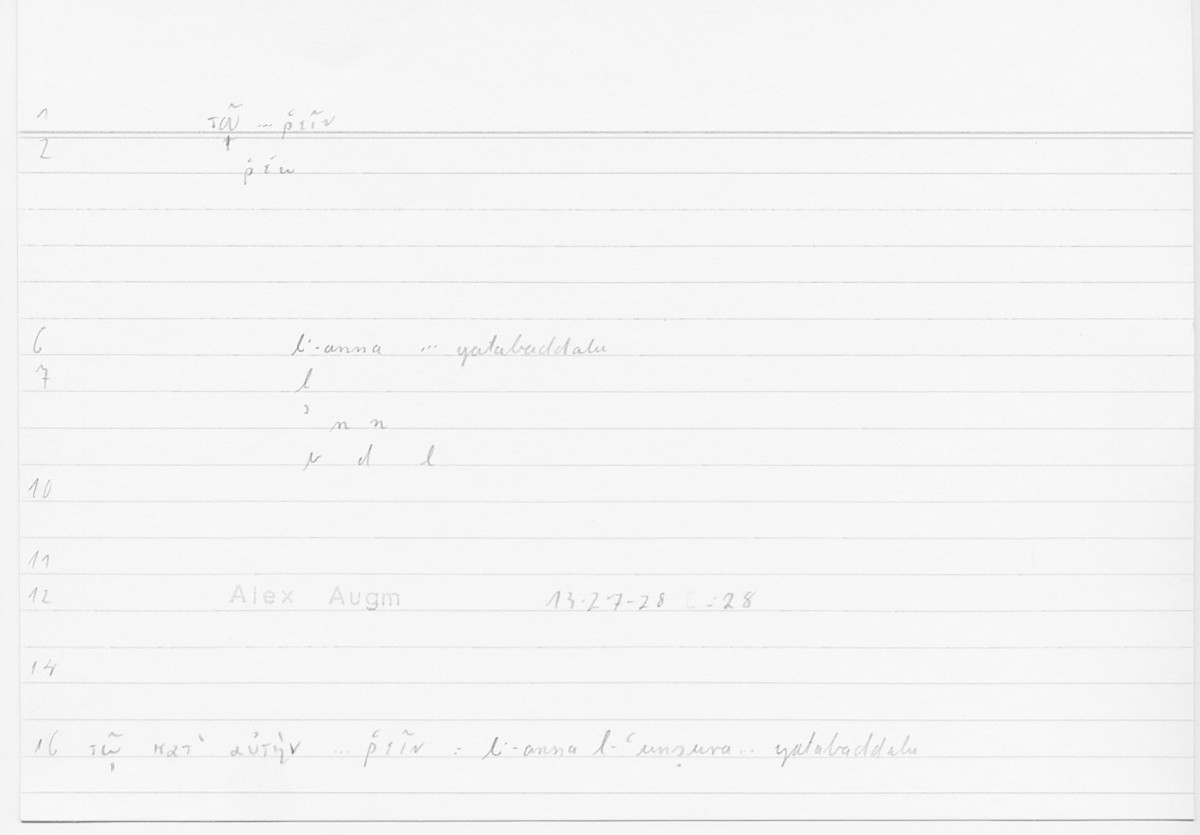 1 τῷ ... ῥεῖν
2
ῥέω
6 li-anna ... yatabaddalu
7 l
ʾ n n
d l
10
11
12 Alex Augm 13-27-28 E -28
14
16 τῷ κατ' αὐτὴν ... ῥεῖν = li-anna l-ʿunṣura... yatabaddalu